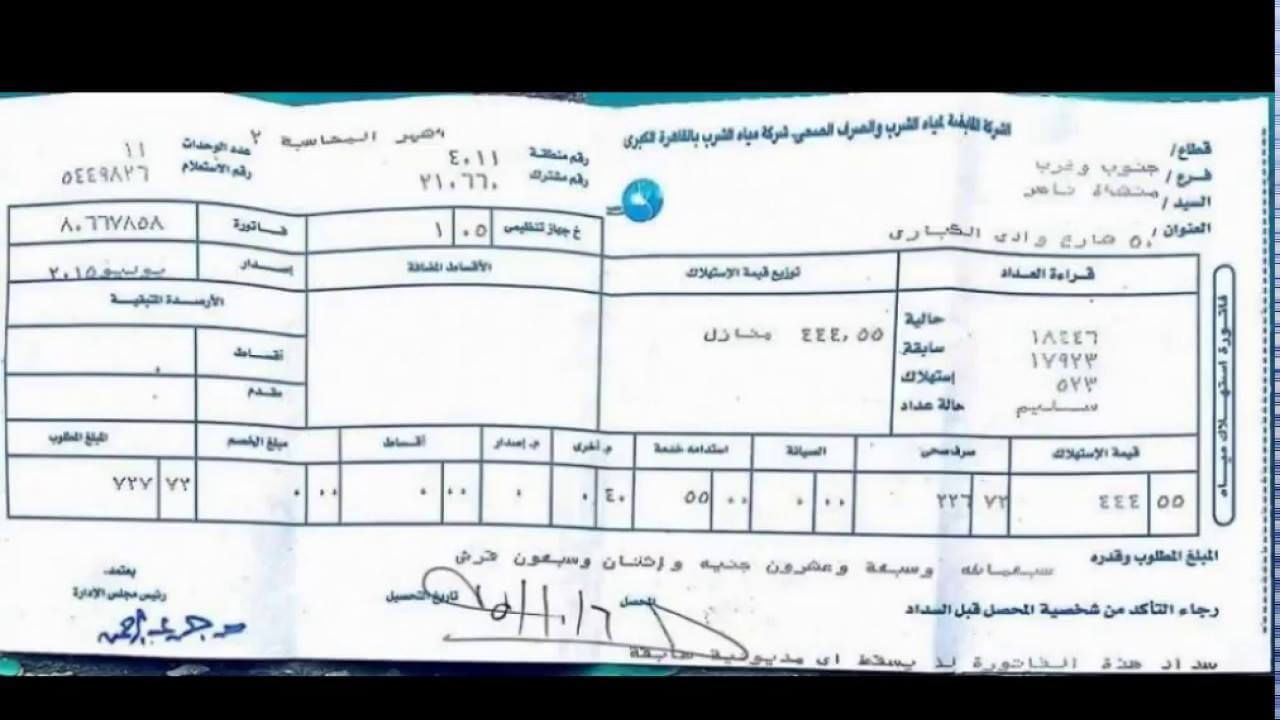 الشركة القابضة لمياه الشرب والصرف الصحى شركة مياه الشرب بالقاهرة الكبرى
قطاع/
فرع/ جنوب وغرب
السيد/ منشاة ناصر
العنوان/ ٥٠ شارع وادى الكبارى
المحاسبة ٢
رقم منطقة ٤٠١١
رقم مشترك ٢١٠٦٦٠
عدد الوحدات ١١
رقم الاستعلام ٥٤٤٩٨٢٦
خ جهاز تنظيمى ٠٥ ١
فاتورة ٨٠٦٦٧٨٥٨
إصدار يوليو ٢٠١٥
فاتورة استهلاك مياه
قراءة العداد
حالية ١٨٤٤٦
سابقة ١٧٩٢٣
إستهلاك ٥٢٣
حالة عداد سليم
توزيع قيمة الإستهلاك
٤٤٤,٥٥ منازل
الأقساط المضافة
الأرصدة المتبقية
أقساط ٠
مقدم ٠
قيمة الإستهلاك صرف صحى الصيانة استدامه خدمة م. أخرى م. إصدار أقساط مبلغ الخصم المبلغ المطلوب
٥٥ ٤٤٤ ٧٢ ٢٢٦ ٠٠ ٠ ٠٠ ٥٥ ٤٠ ٠ ٠ ٠٠ ٠ ٠٠ ٠ ٧٢ ٧٢٧
المبلغ المطلوب وقدره سبعمائه وسبعة وعشرون جنيه وإثنان وسبعون قرش
رجاء التأكد من شخصية المحصل قبل السداد
المحصل
تاريخ التحصيل
يعتمد،
رئيس مجلس الإدارة
سداد هذة الفاتورة لا يسقط اى مديونية سابقة